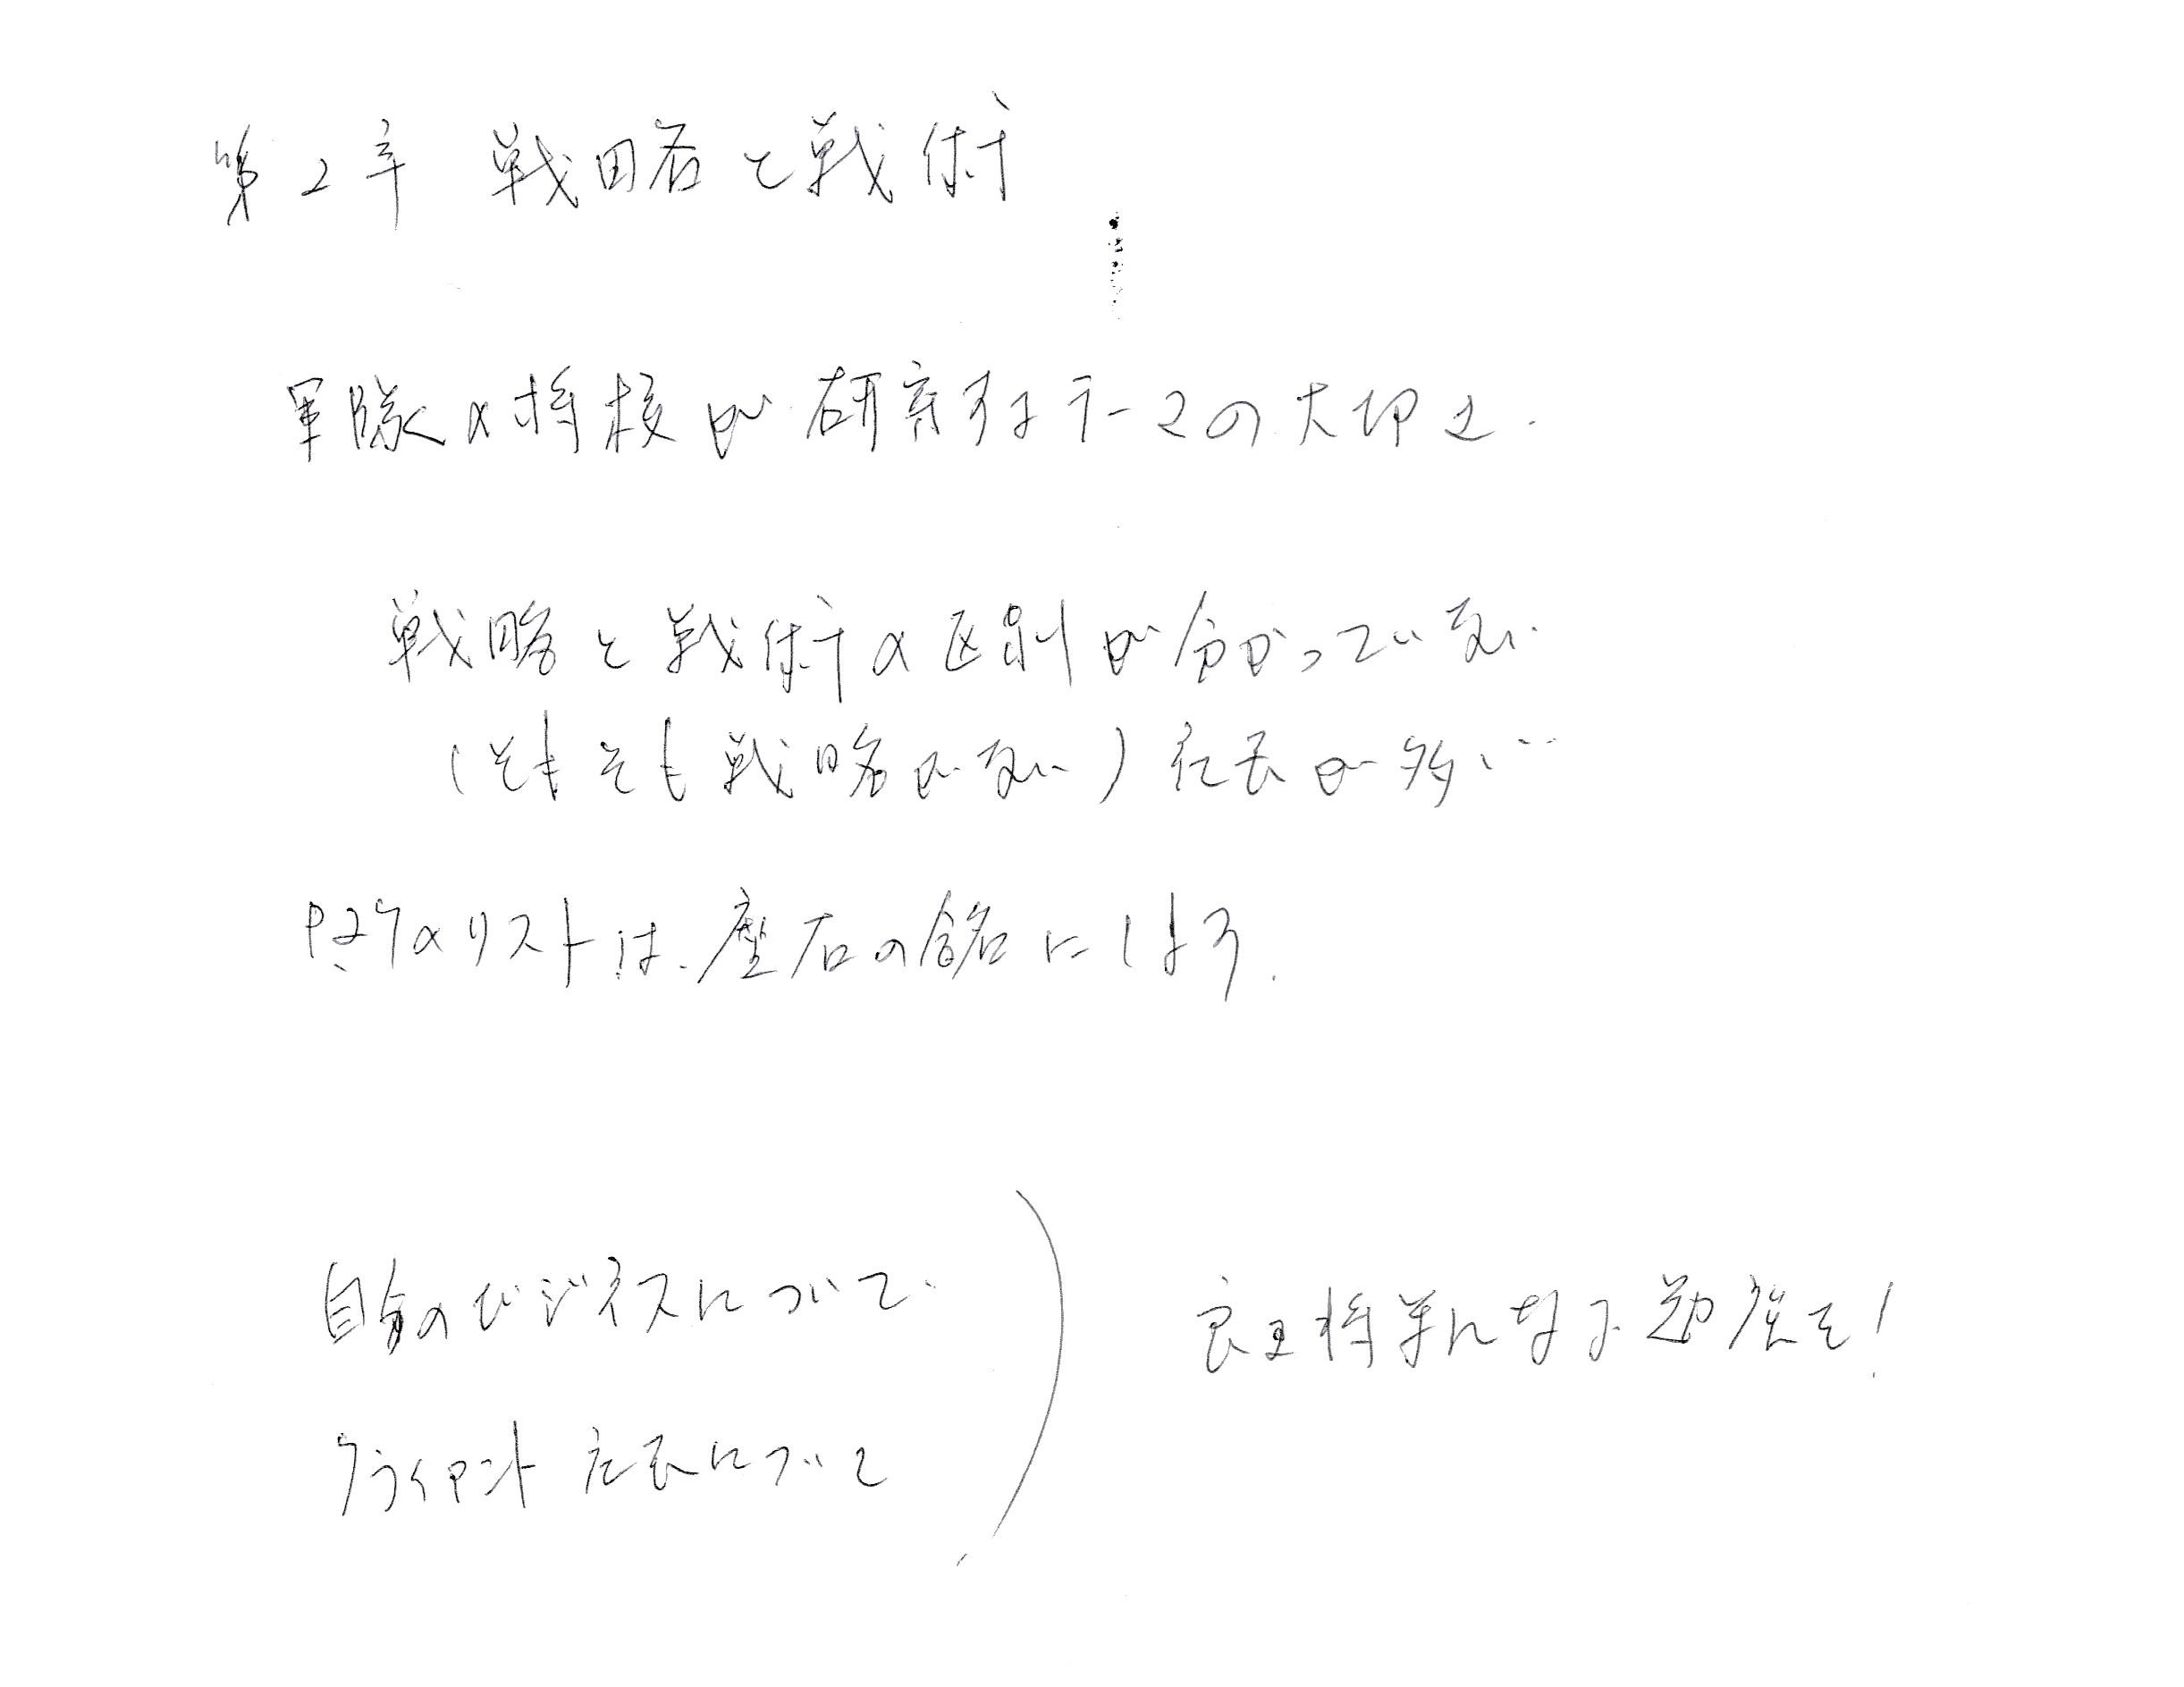 第2章 戦略と戦術
軍隊の将校が研究するテーマの大切さ.
戦略と戦術の区別が分かっていない
(そもそも戦略がない)社長が多い…
リストは、座右の銘にしよう.
自分のビジネスについて.
クライアント社長について
良き将軍になる勉強を!